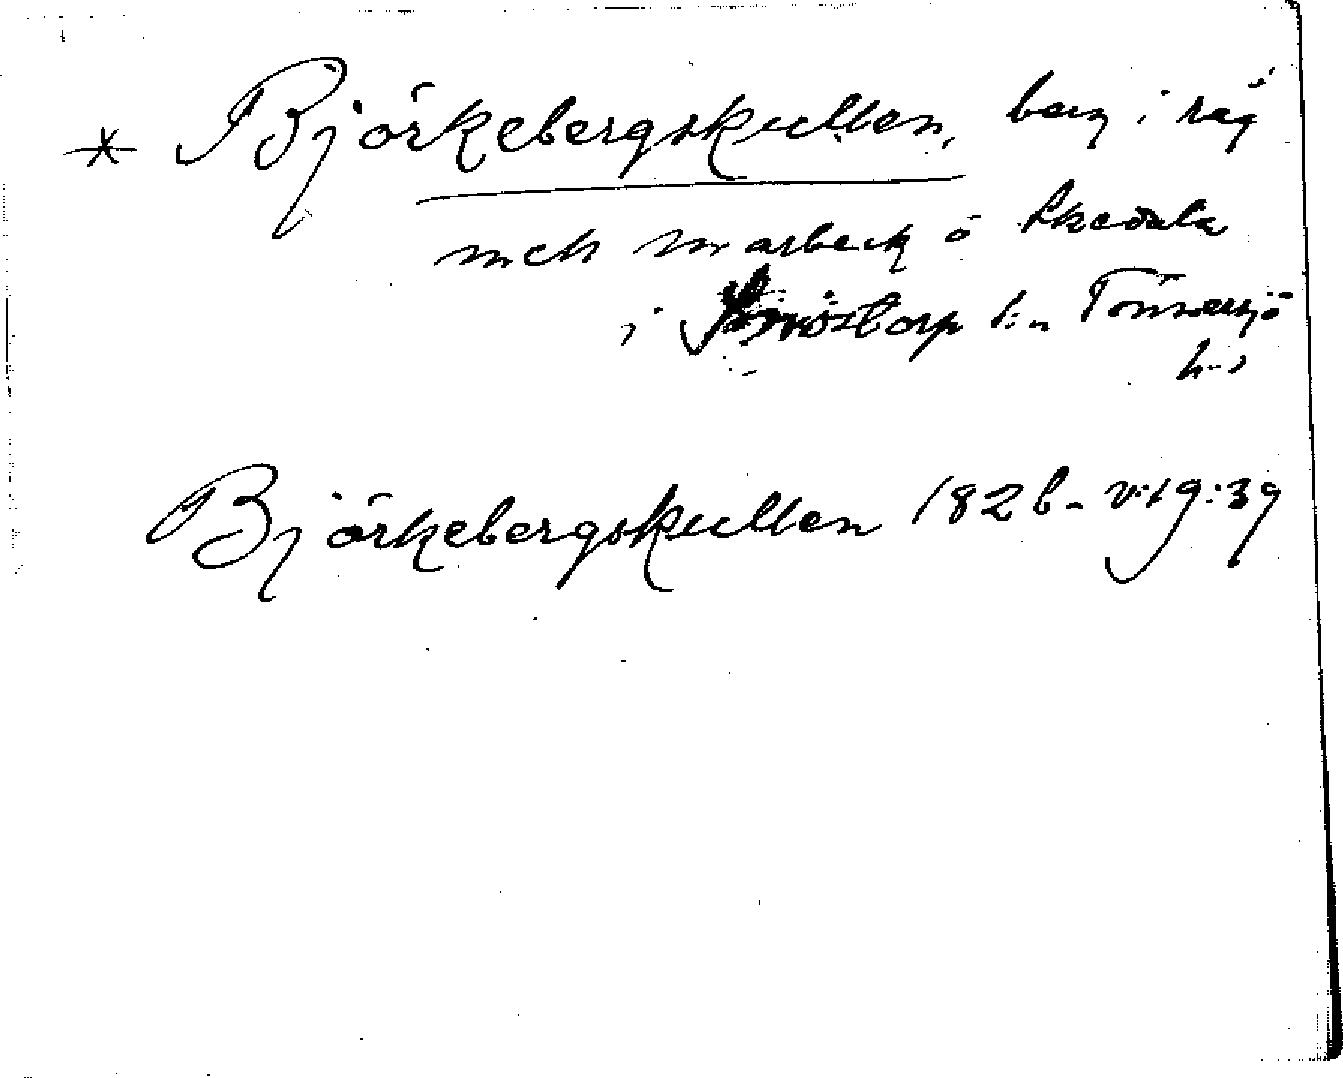 * Björkebergskullen, berg i råg
mell Marbeck o Skedala
i Snöstorp sn Tönnersjö
hd
Björkebergskullen 1826- V:19:39